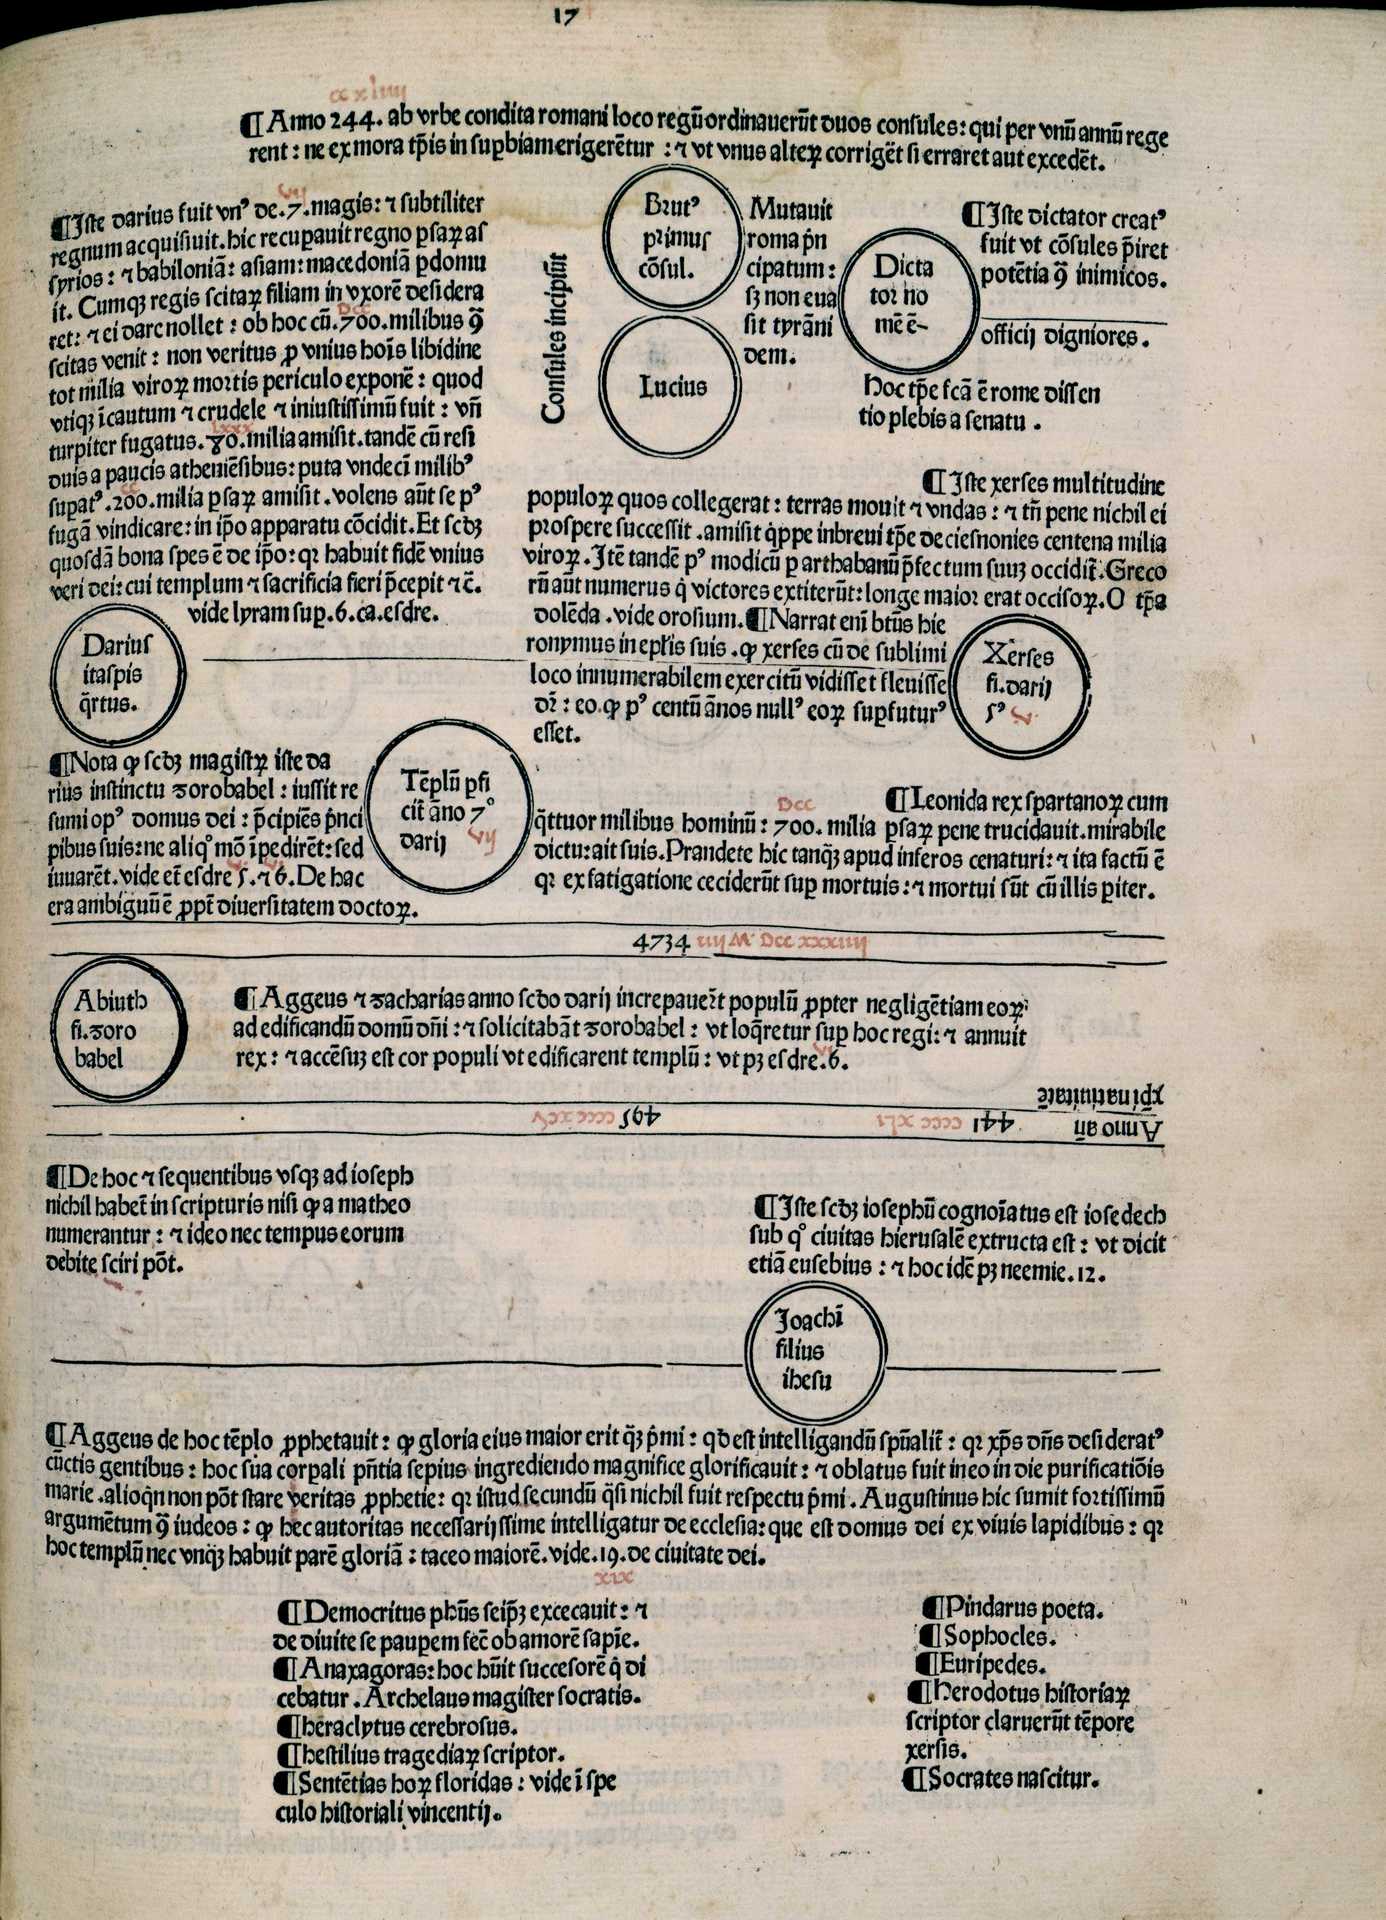 17
ccxliiij
¶Anno 244. ab vrbe condita romani loco regū ordinauerūt duos consules: qui per vnū annū rege
rent: ne ex mora tp̄is in suꝑbiam erigerētur : ⁊ vt vnus alteꝝ corrigēt si erraret aut excedēt.
vij
¶Iste darius fuit vnꝰ de .7. magis: ⁊ subtiliter
regnum acquisiuit. hic recuꝑauit regno ꝑsaꝝ as
syrios: ⁊ babiloniā: asiam: macedoniā ꝑdomu
it. Cumqꝫ regis scitaꝝ filiam in vxorē desidera
ret: ⁊ ei dare nollet : ob hoc cū .700. milibus ꝯ̄
Dcc
scitas venit: non veritus ꝓ vnius hoīs libidine
tot milia viroꝝ mortis periculo exponē: quod
vtiqꝫ īcautum ⁊ crudele ⁊ iniustissimū fuit: vn̄
lxxx
turpiter fugatus .80. milia amisit. tandē cū resi
duis a paucis atheniēsibus: puta vndecī milibꝰ
cc
suꝑatꝰ .200. milia ꝑsaꝝ amisit. volens aūt se pꝰ
fugā vindicare: in ip̄o apparatu cōcidit. Et scd̄ꝫ
quosdā bona spes ē de ip̄o: qꝛ habuit fidē vnius
veri dei: cui templum ⁊ sacrificia fieri p̄cepit ⁊ c̄.
vide lyram suꝑ .6. ca. esdre.
Consules incipiūt
Brutꝰ
primus
cōsul.
Lucius
Mutauit
roma p̄n
cipatum:
sꝫ non eua
sit tyrāni
dem.
Dicta
tor no
mē ē
¶Iste dictator creatꝰ
fuit vt cōsules p̄iret
potētia ꝯ̄ inimicos.
officij digniores.
Hoc tp̄e fcā ē rome dissen
tio plebis a senatu .
¶Iste xerses multitudine
populoꝝ quos collegerat: terras mouit ⁊ vndas: ⁊ tn̄ pene nichil ei
prospere successit .amisit q̇ppe inbreui tp̄e deciesnonies centena milia
viroꝝ. Itē tandē pꝰ modicū ꝑ arthabanū p̄fectum suuꝫ occidit̄. Greco
rū aūt numerus q̇ victores extiterūt: longe maior erat occisoꝝ. O tp̄a
dolēda .vide orosium. ¶Narrat eni btūs hie
ronymus in epl̄is suis .ꝙ xerses cū de sublimi
loco innumerabilem exercitū vidisset fleuisse
dr̄: eo ꝙ pꝰ centū ānos nullꝰ eoꝝ suꝑfuturꝰ
esset.
Darius
itaspis
q̄rtus.
Xerses
fi. darij
5ꝰ v
¶Nota ꝙ scd̄ꝫ magistꝝ iste da
rius instinctu zorobabel: iussit re
sumi opꝰ domus dei: p̄cipiēs p̄nci
pibus suis: ne aliqͦ mō īpedirēt: sed
iuuarēt. vide et̄ esdre 5. ⁊ 6. De hac
era ambiguū ē ꝓpt̄ diuersitatem doctoꝝ.
Tēplū ꝑfi
cit̄ āno 7ͦ
darij vij
¶Leonida rex spartanoꝝ cum
Dcc
q̄ttuor milibus hominū: 700. milia ꝑsaꝝ pene trucidauit. mirabile
dictu: ait suis. Prandete hic tanqꝫ̄ apud inferos cenaturi: ⁊ ita factū ē
qꝛ ex fatigatione ceciderūt suꝑ mortuis: ⁊ mortui sūt cū illis ꝑiter.
4734 iiij M Dcc xxxiiij
Abiuth
fi. zoro
babel
¶Aggeus ⁊ zacharias anno scd̄o darij increpauer̄t populū ꝓpter negligētiam eoꝝ
ad edificandū domū dn̄i: ⁊ solicitabāt zorobabel: vt loq̄retur suꝑ hoc regi: ⁊ annuit
rex: ⁊ accēsuꝫ est cor populi vt edificarent templū: vt pꝫ esdre .6.
vi
Anno an̄
xp̄i natiuitatē
441 cccc xli
495 cccc xcv
¶De hoc ⁊ sequentibus vsqꝫ ad ioseph
nichil habet̄ in scripturis nisi ꝙ a matheo
numerantur: ⁊ ideo nec tempus eorum
debite sciri pōt.
¶Iste scd̄ꝫ iosephū cognoīatus est iosedech
sub qͦ ciuitas hierusalē extructa est: vt dicit
etiā eusebius: ⁊ hoc idē pꝫ neemie .12.
Joachī
filius
ihesu
¶Aggeus de hoc tēplo ꝓphetauit: ꝙ gloria eius maior erit qꝫ̄ p̄mi: qd̄ est intelligandū spūalit̄: qꝛ xp̄s dn̄s desideratꝰ
cūctis gentibus: hoc sua corꝑali pn̄tia sepius ingrediendo magnifice glorificauit: ⁊ oblatus fuit in eo in die purificatiōis
marie .alioq̄n non pōt stare veritas ꝓphetie: qꝛ istud secundū q̄si nichil fuit respectu p̄mi. Augustinus hic sumit fortissimū
argumētum ꝯ̄ iudeos: ꝙ hec autoritas necessarijssime intelligatur de ecclesia: que est domus dei ex viuis lapidibus: qꝛ
hoc templū nec vnqꝫ̄ habuit parē gloriā: taceo maiorē. vide .19. de ciuitate dei.
xix
¶Democritus phūs seip̄ꝫ excecauit: ⁊
de diuite se pauꝑem fec̄ ob amorē sapīe.
¶Anaxagoras: hoc hūit succesorē q̇ di
cebatur. Archelaus magister socratis.
¶heraclytus cerebrosus.
¶hestilius tragediaꝝ scriptor.
¶Sentētias hoꝝ floridas: vide ī spe
culo historiali vincentij.
¶Pindarus poeta.
¶Sophocles.
¶Euripedes.
¶herodotus historiaꝝ
scriptor claruerūt tēpore
xersis.
¶Socrates nascitur.